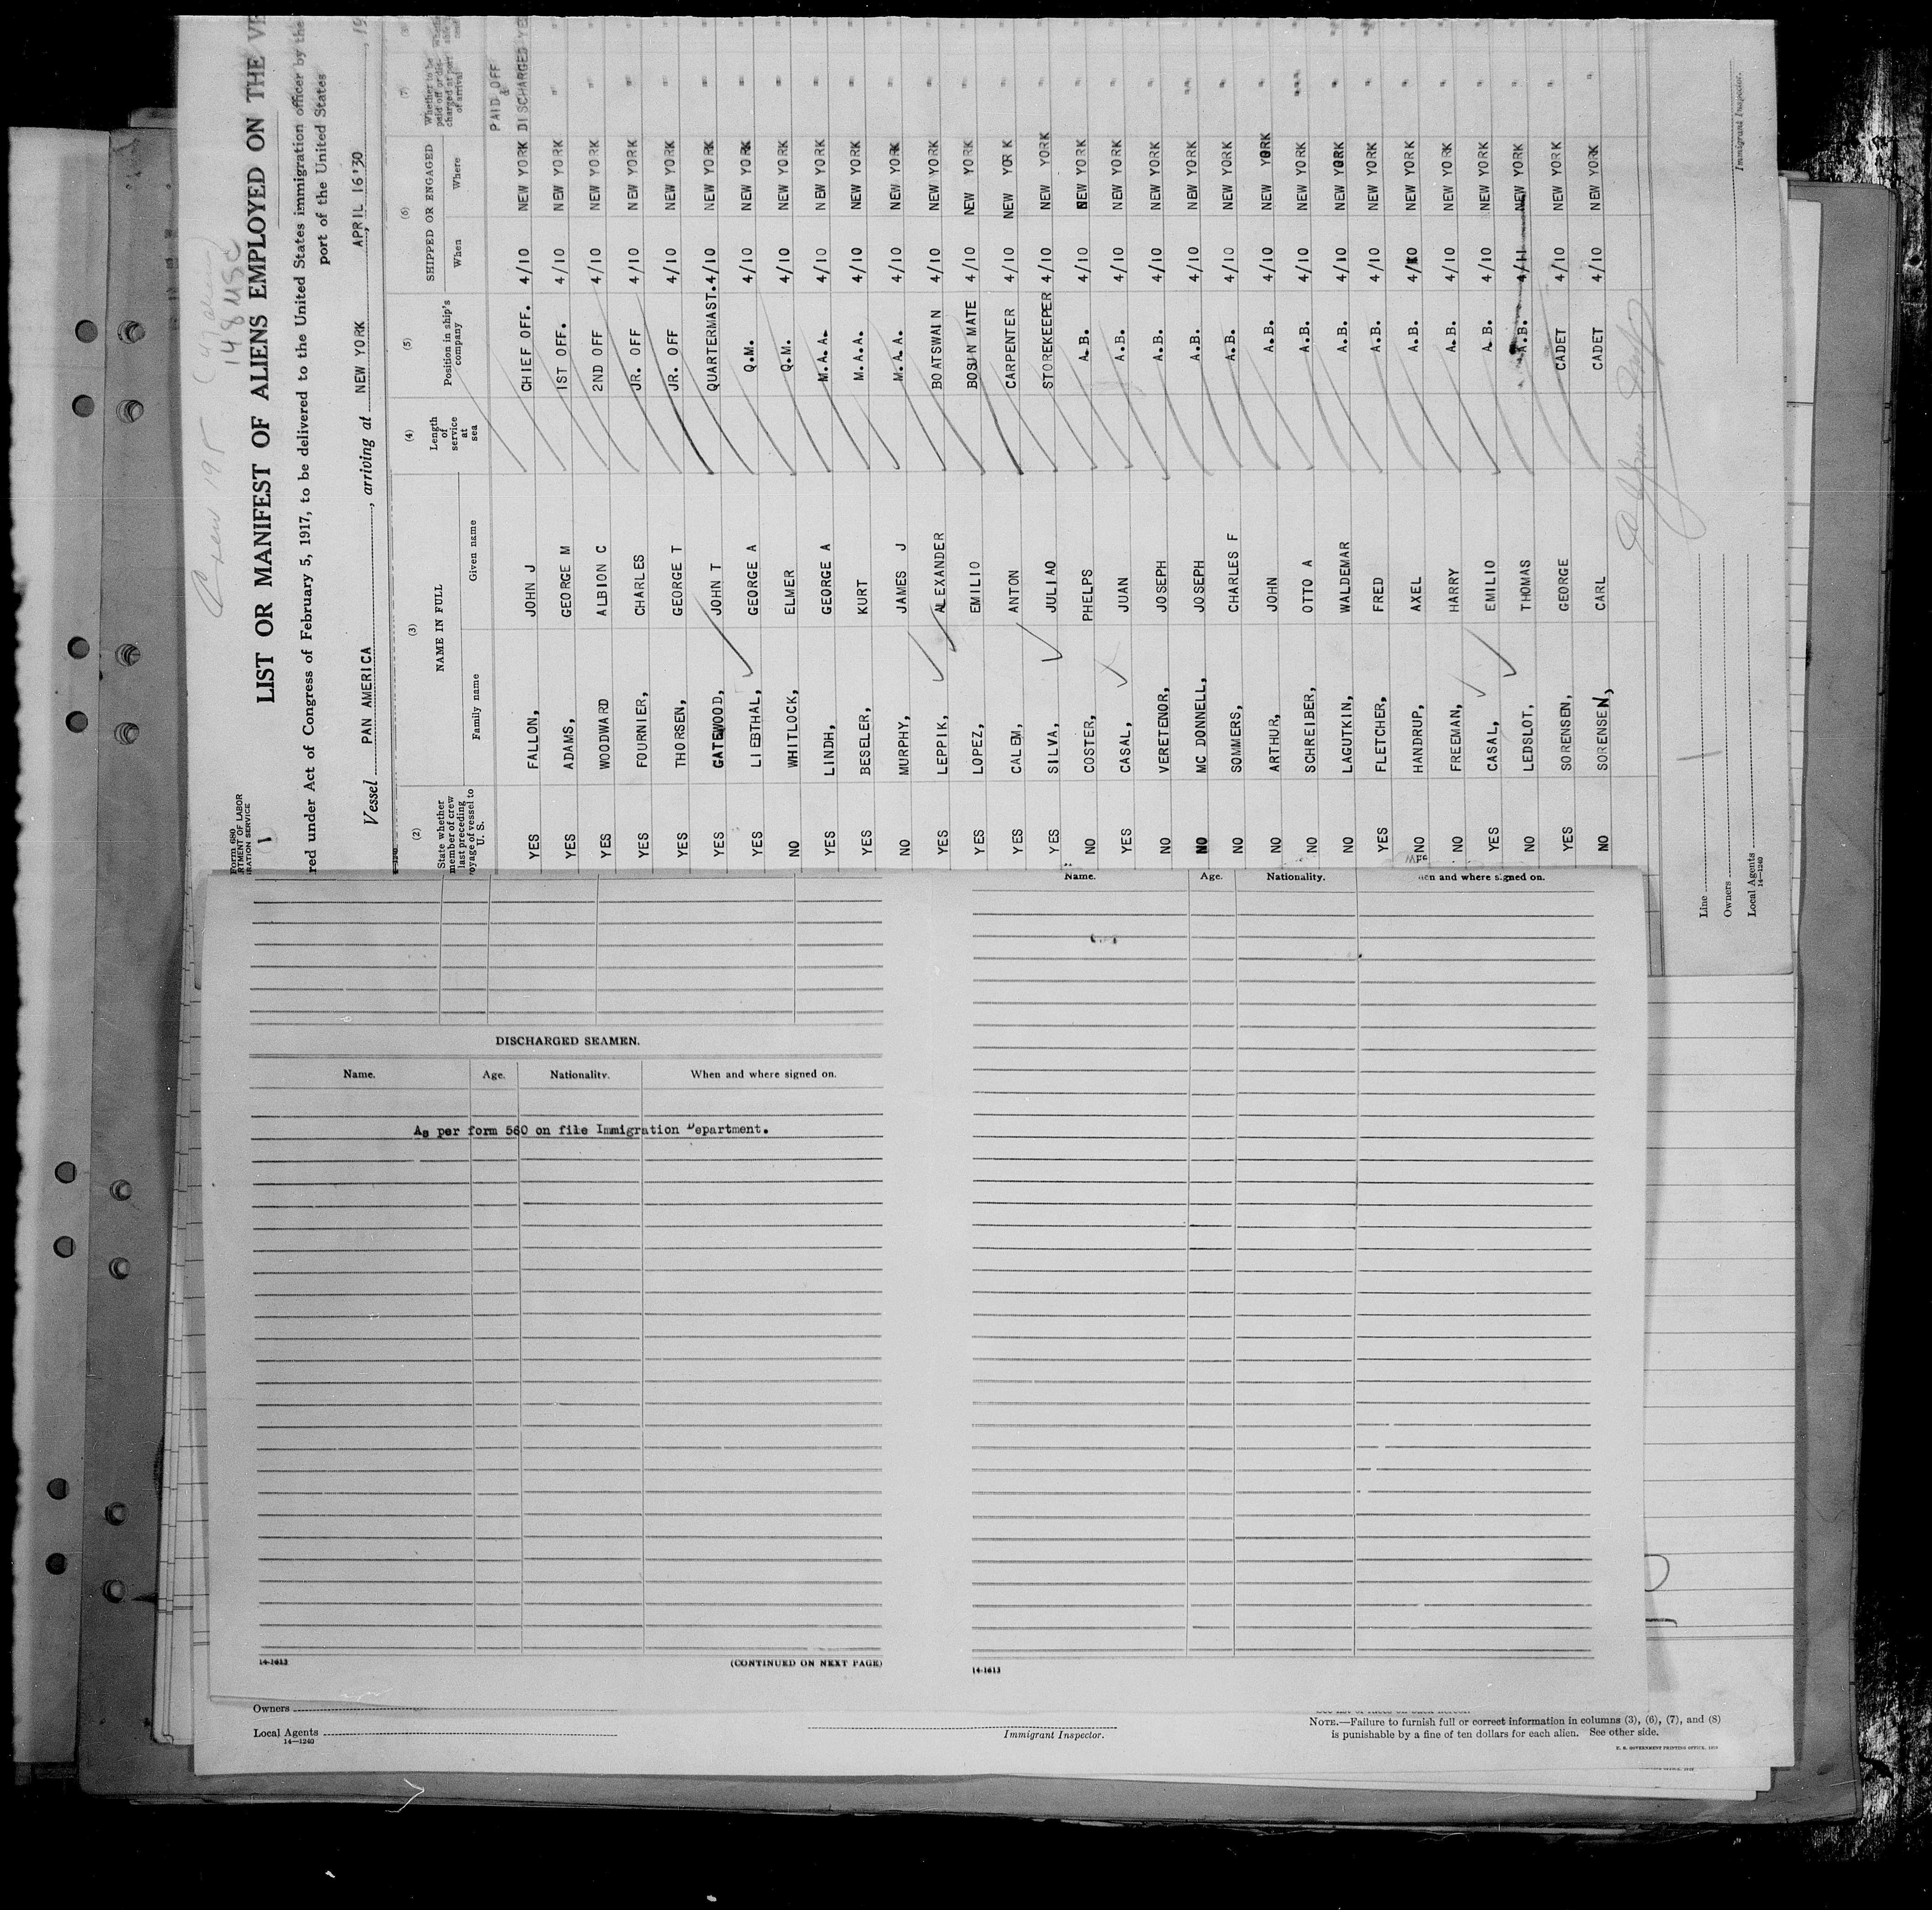 Form 680
RTMENT OF LABOR
IRATION SERVICE
1
Crew 195
148 USC
LIST OR MANIFEST OF ALIENS EMPLOYED ON THE VE
red under Act of Congress of February 5, 1917, to be delivered to the United States immigration officer by the
port of the United States
Vessel PAN AMERICA , arriving at NEW YORK APRIL 16'30 , 19
(2) (3) (4) (5) (6) (7) (8)
State whether member of crew last preceding voyage of vessel to U. S.
NAME IN FULL
Family name Given name
Length of service at sea
Position in ship's company
SHIPPED OR ENGAGED
When Where
Whether to be paid off or discharged at port of arrival
PAID OFF
&
YES FALLON, JOHN J CHIEF OFF. 4/10 NEW YORK DISCHARGED YES
YES ADAMS, GEORGE M 1ST OFF. 4/10 NEW YORK " "
YES WOODWARD ALBION C 2ND OFF 4/10 NEW YORK " "
YES FOURNIER, CHARLES JR. OFF 4/10 NEW YORK " "
YES THORSEN, GEORGE T JR. OFF 4/10 NEW YORK " "
YES GATEWOOD, JOHN T QUARTERMAST. 4/10 NEW YORK " "
YES LIEBTHAL, GEORGE A Q.M. 4/10 NEW YORK " "
NO WHITLOCK, ELMER Q.M. 4/10 NEW YORK " "
YES LINDH, GEORGE A M.A.A. 4/10 NEW YORK " "
YES BESELER, KURT M.A.A. 4/10 NEW YORK " "
NO MURPHY, JAMES J M.A.A. 4/10 NEW YORK " "
YES LEPPIK, ALEXANDER BOATSWAIN 4/10 NEW YORK " "
YES LOPEZ, EMILIO BOSUN MATE 4/10 NEW YORK " "
YES CALEM, ANTON CARPENTER 4/10 NEW YORK " "
YES SILVA, JULIAO STOREKEEPER 4/10 NEW YORK " "
NO COSTER, PHELPS A.B. 4/10 NEW YORK " "
YES CASAL, JUAN A.B. 4/10 NEW YORK " "
NO VERETENOR, JOSEPH A.B. 4/10 NEW YORK " "
NO MC DONNELL, JOSEPH A.B. 4/10 NEW YORK " "
NO SOMMERS, CHARLES F A.B. 4/10 NEW YORK " "
NO ARTHUR, JOHN A.B. 4/10 NEW YORK " "
NO SCHREIBER, OTTO A A.B. 4/10 NEW YORK " "
NO LAGUTKIN, WALDEMAR A.B. 4/10 NEW YORK " "
YES FLETCHER, FRED A.B. 4/10 NEW YORK " "
NO HANDRUP, AXEL A.B. 4/10 NEW YORK " "
NO FREEMAN, HARRY A.B. 4/10 NEW YORK " "
YES CASAL, EMILIO A.B. 4/10 NEW YORK " "
NO LEDSLOT, THOMAS A.B. 4/11 NEW YORK " "
YES SORENSEN, GEORGE CADET 4/10 NEW YORK " "
NO SORENSEN, CARL CADET 4/10 NEW YORK "
Line
Owners
Local Agents
14—1240
Immigrant Inspector.
DISCHARGED SEAMEN.
Name. Age. Nationality. When and where signed on.
As per form 560 on file Immigration Department.
14-1613
(CONTINUED ON NEXT PAGE)
Name. Age. Nationality. hen and where signed on.
14-1613
Owners
Local Agents
14—1240
Immigrant Inspector.
NOTE.—Failure to furnish full or correct information in columns (3), (6), (7), and (8)
is punishable by a fine of ten dollars for each alien. See other side.
U. S. GOVERNMENT PRINTING OFFICE. 1929